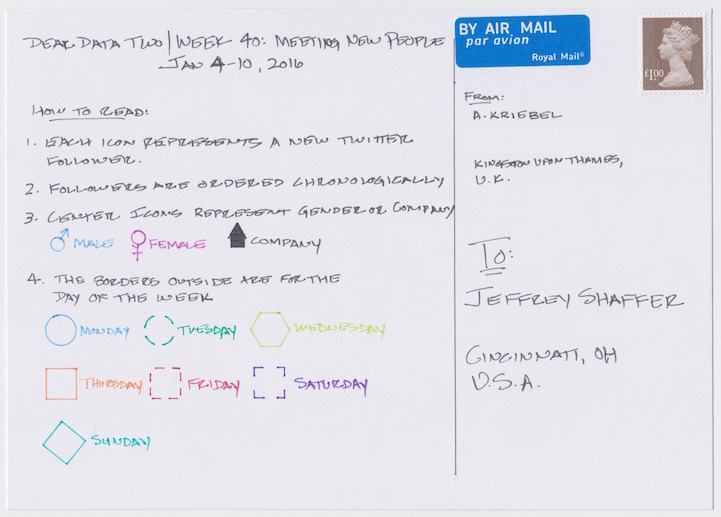 DEAR DATA TWO | WEEK 40: MEETING NEW PEOPLE
JAN 4-10, 2016
HOW TO READ:
1. EACH ICON REPRESENTS A NEW TWITTER
FOLLOWER.
2. FOLLOWERS ARE ORDERED CHRONOLOGICALLY
3. CENTER ICONS REPRESENT GENDER OR COMPANY
MALE FEMALE COMPANY
4. THE BORDERS OUTSIDE ARE FOR THE
DAY OF THE WEEK
MONDAY TUESDAY WEDNESDAY
THURSDAY FRIDAY SATURDAY
SUNDAY
BY AIR MAIL
par avion
Royal Mail®
£1.00
FROM:
A. KRIEBEL
KINGSTON UPON THAMES,
U.K.
TO:
JEFFREY SHAFFER
CINCINNATI, OH
U.S.A.